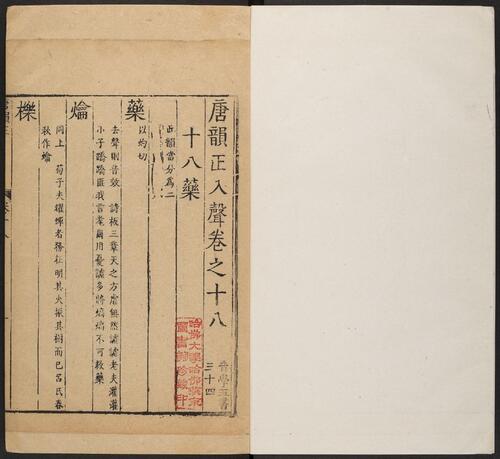 唐韻正入聲卷之十八
音學五書
三十四
十八藥
此韻當分爲二
藥
以灼切
去聲則音效 詩板三章天之方虐無然謔謔老夫灌灌
小子蹻蹻匪我言耄爾用憂謔多將熇熇不可救藥
爚
同上 荀子夫耀蟬者務在明其火振其樹而已呂氏春
秋作爚
櫟